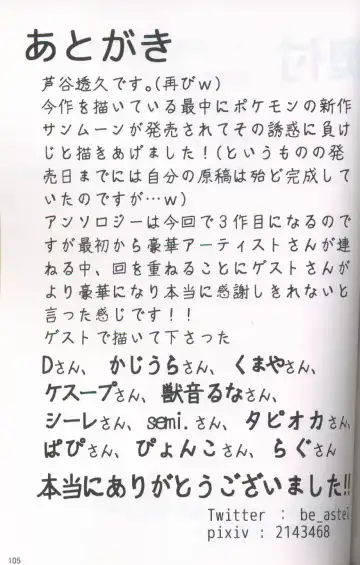 あとがき
芦谷透久です。(再びw)
今作を描いている最中にポケモンの新作
サンムーンが発売されてその誘惑に負け
じと描きあげました!(というものの発
売日までには自分の原稿は殆ど完成して
いたのですが…w)
アンソロジーは今回で3作目になるので
すが最初から豪華アーティストさんが連
ねる中、回を重ねるごとにゲストさんが
より豪華になり本当に感謝しきれないと
言った感じです!!
ゲストで描いて下さった
Dさん、かじうらさん、くまやさん、
ケスープさん、獣音るなさん、
シーレさん、semi.さん、タピオカさん、
ぱぴさん、ぴょんこさん、らぐさん
本当にありがとうございました!!
Twitter : be_aste
pixiv : 2143468
105